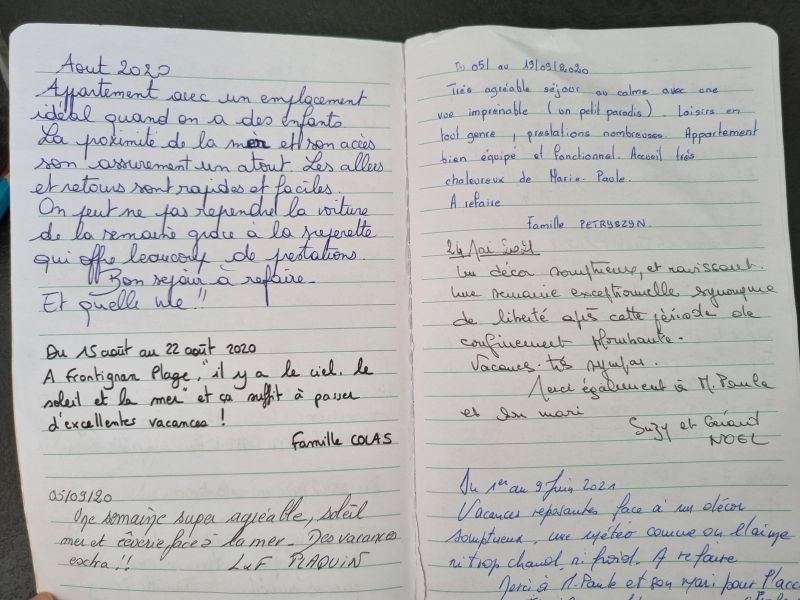 Aout 2020
Appartement avec un emplacement
idéal quand on a des enfants
La proximité de la mer et son accès
son assurement un atout. Les allers
et retours sont rapides et faciles.
On peut ne pas reprendre la voiture
de la semaine grâce à la superette
qui offre beaucoup de prestations.
Bon sejour à refaire.
Et quelle vue !!
Du 15 août au 22 août 2020
A Frontignan Plage, "il y a le ciel, le
soleil et la mer" et ça suffit à passer
d'excellentes vacances !
Famille COLAS
05/09/20
Une semaine super agréable, soleil
mer et rêverie face à la mer. Des vacances
extra !! L et F PLAQUIN
Du 05/ au 19/09/2020
Très agréable séjour au calme avec une
vue imprenable (un petit paradis). Loisirs en
tout genre, prestations nombreuses. Appartement
bien équipé et fonctionnel. Accueil très
chaleureux de Marie-Paule.
A refaire
Famille PETRYSZYN.
24 Mai 2021
Un décor somptueux, et ravissant.
Une semaine exceptionnelle synonyme
de liberté après cette période de
confinement
Vacances très sympas.
Merci également à M. Paule
et son mari
Suzy et Gérard
NOEL
Du 1er au 9 Juin 2021
Vacances reposantes face à un décor
somptueux, une météo comme on l'aime
ni trop chaud, ni froid. A refaire
Merci à M. Paule et son mari pour l'acc